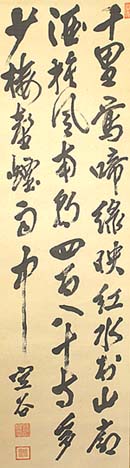 千里鶯啼緑映紅水村山郭
酒旗風南朝四百八十寺多
少樓臺煙雨中
空谷